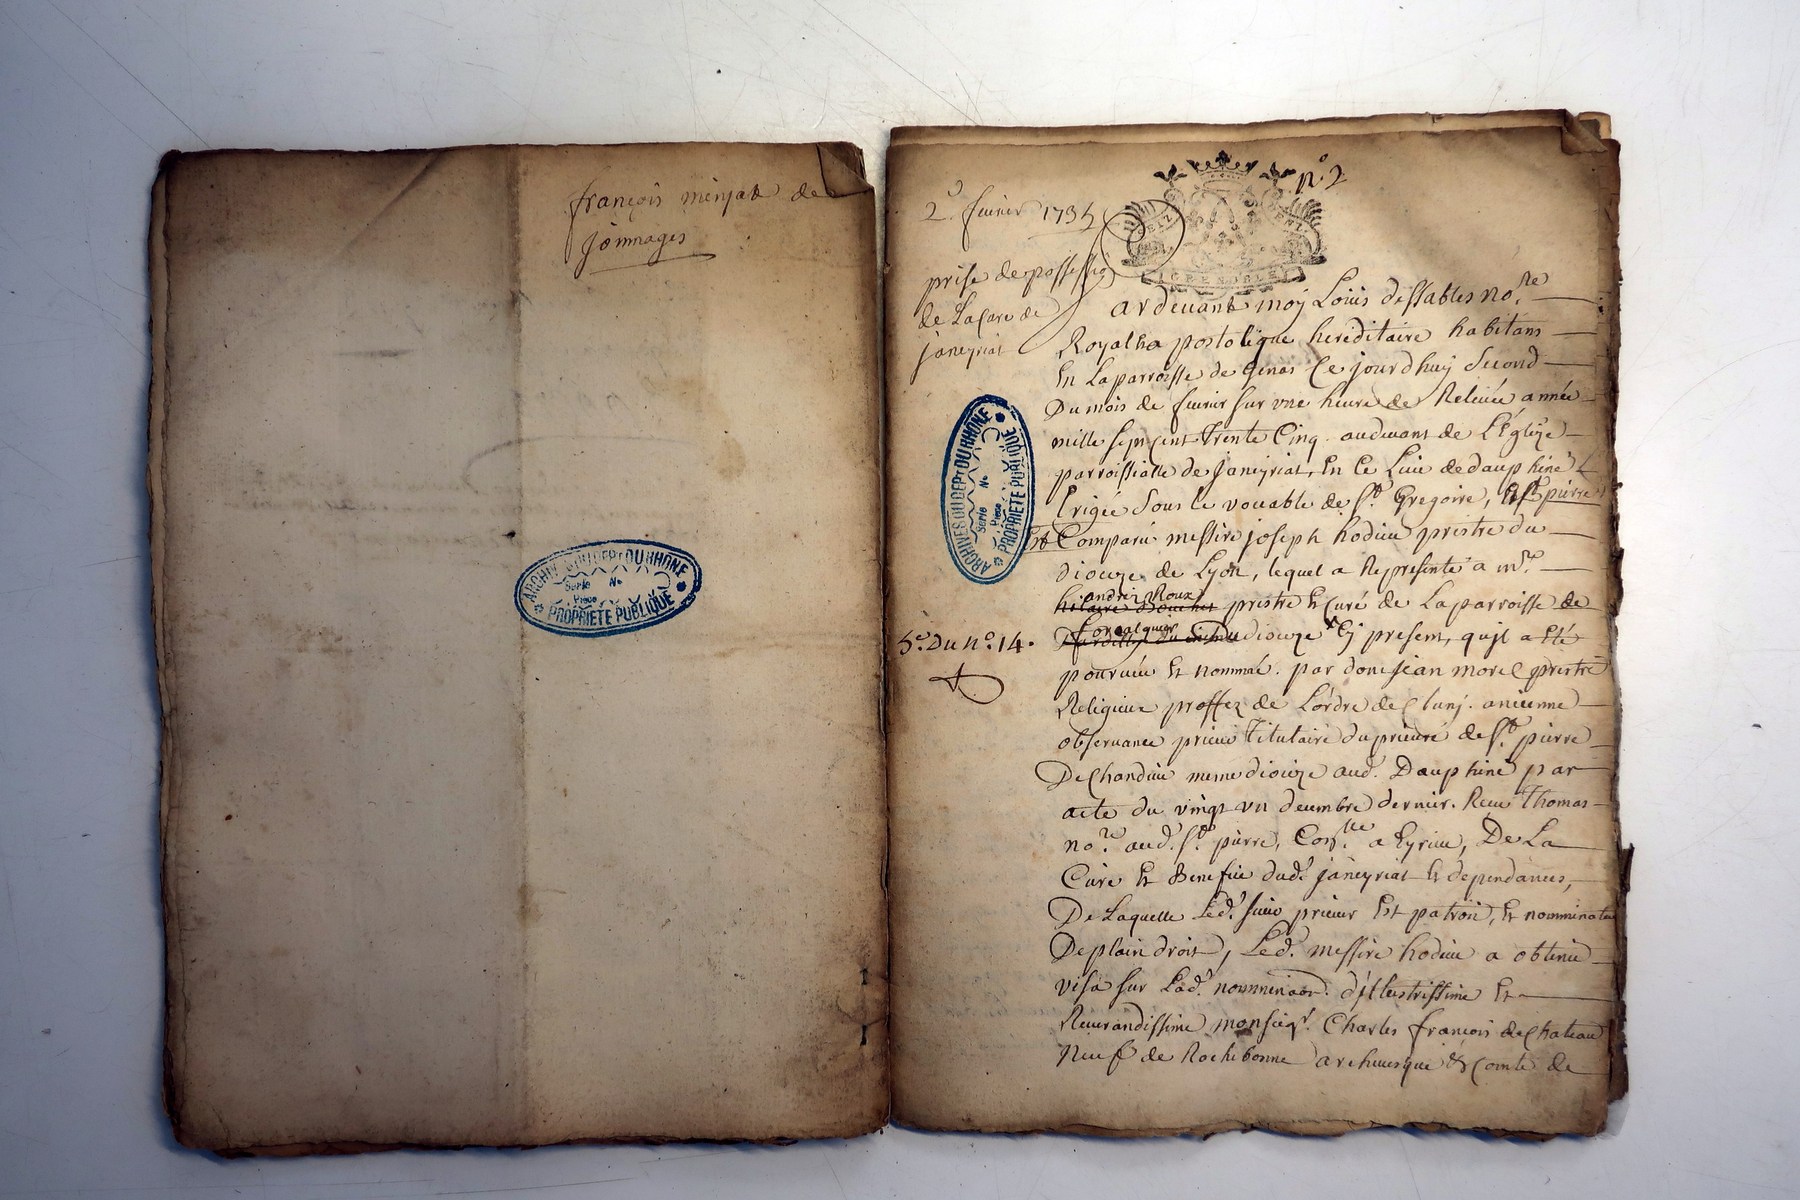 françois minjat de
jonnages
ARCHIVES DU DEPT DU RHÔNE
Serie No
Piece
PROPRIETE PUBLIQUE
n.° 2
2.e feuvrier 1735
prise de possession
de La Cure de
janeyriat
ARCHIVES DU DEPT DU RHÔNE
Serie No
Piece
PROPRIETE PUBLIQUE
5.e Du n.° 14.
GRENOBLE
Pardevant moy Louis dessables no.re
Royal ha postolique hereditaire habitans
En La parroisse de Genas Ce jourd'huy Second
Du mois de feuvrier sur vne heure de Relevée année
mille sept Cent Trente Cinq. audevant de L'Églize
parroissialle de janeyriat, En Ce Lieu de dauphiné
Erigée Sous le vocable de S.t Gregoire, Est pierre
Est Comparu messire joseph hodieu prestre du
dioceze de Lyon, lequel a Representé a m.re
andrez Roux
hilaire Bouchet prestre Et Curé de La parroisse de
dioceze Ey present, qu'jl a été
pourveu Et nommé. par dom jean morel prestre
Religieux proffez de L'ordre de Clunj. anienne
observance prieur Titulaire du prieuré de S.t pierre
De Chandieu meme dioceze aud.t Dauphiné par
acte du vingt vn decembre dernier. Receu Thomas
no.re aud.t S.t pierre, Con.lle a Eyrieu, De La
Cure Et Benefice dud.t janeyriat Et dependances,
De Laquelle Led.t sieur prieur Est patron, Et nominateur
De plain droit, Led.t messire hodieu a obtenu
visa sur Lad.e nomminaon. d'jllustrissime Et
Reverandissime monseig.r Charles françois de Chateau
Neuf de Rochebonne archevesque & Comte de